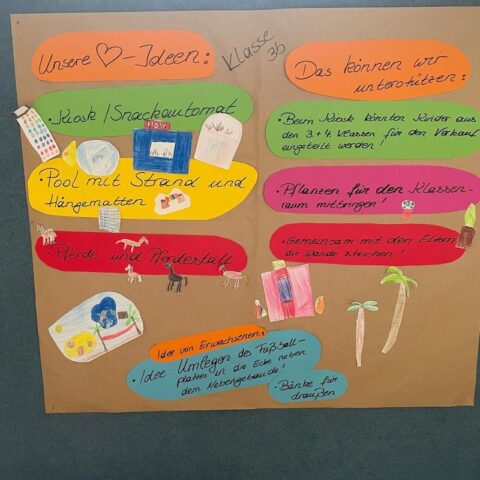 Unsere ♡-Ideen:
Klasse
3b
• Kiosk / Snackautomat
• Pool mit Strand und
Hängematten
• Pferde und Pferdestall
Das können wir
unterstützen:
• Beim Kiosk könnten Kinder aus
den 3+4 Klassen für den Verkauf
eingeteilt werden
• Pflanzen für den Klassen-
raum mitbringen!
• Gemeinsam mit den Eltern
die Wände streichen!
Idee von Erwachsenen:
• Idee: Umlegen des Fußball-
platzes in die Ecke neben
dem Nebengebäude!
• Bänke für
draußen